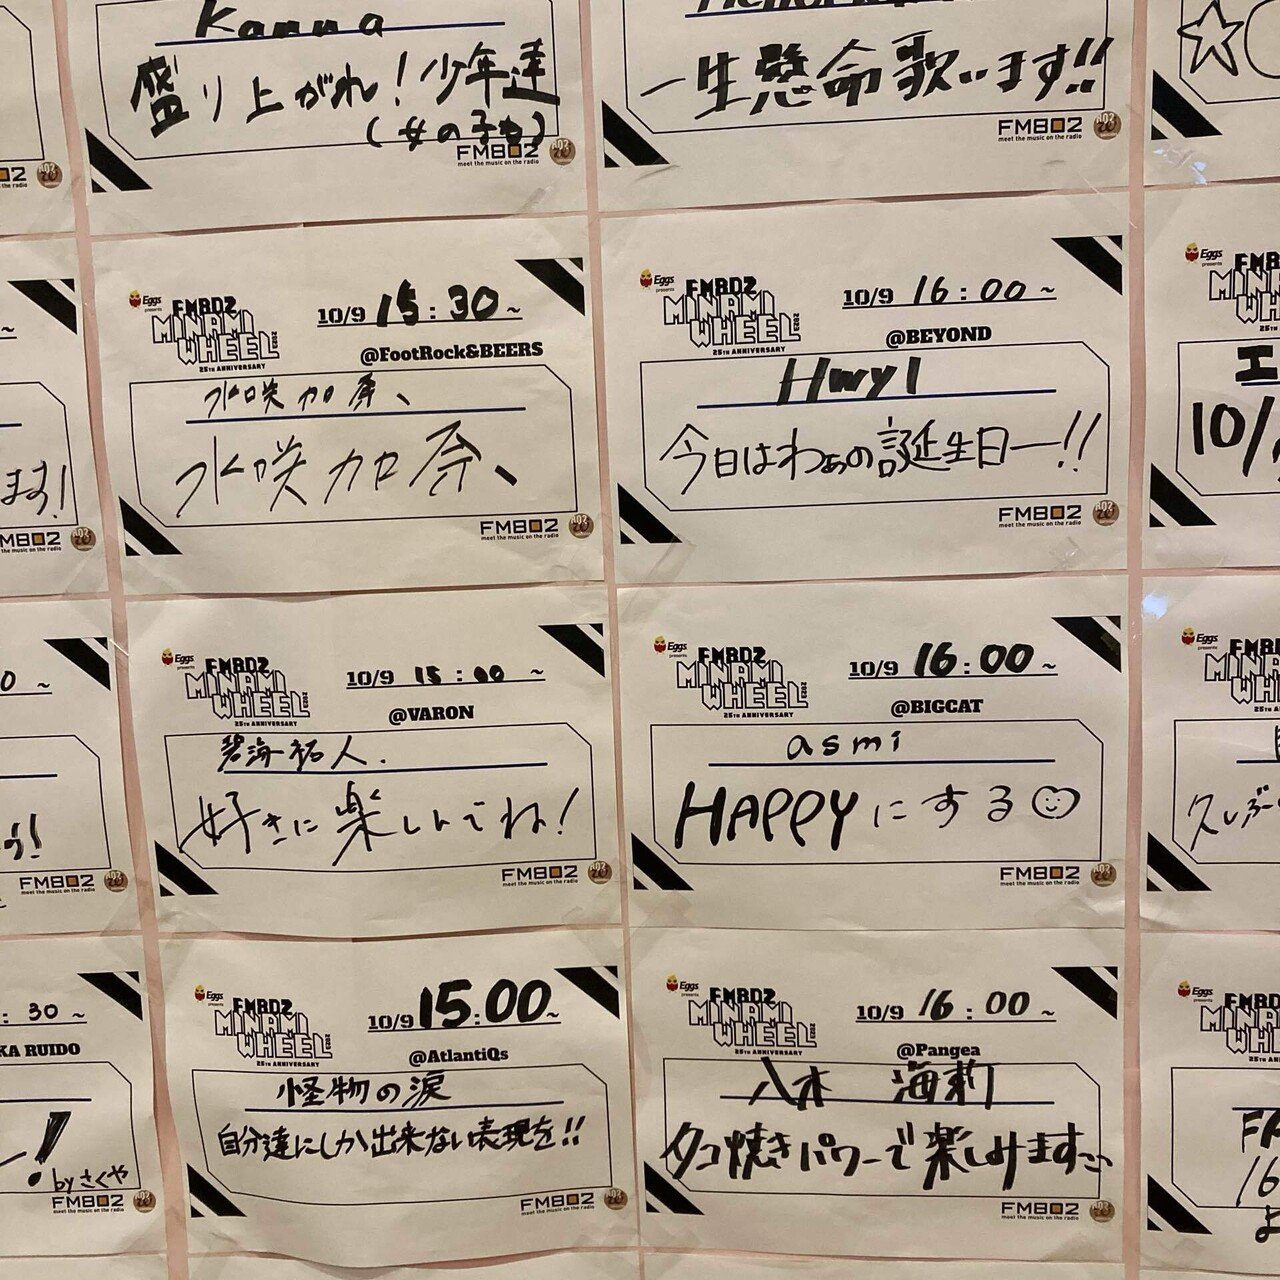 Kanna
盛り上がれ！少年達
(女の子も)
FM802
meet the music on the radio
一生懸命歌います!!
FM802
meet the music on the radio
802
ます!
FM802
meet the music on the radio
Eggs
presents
FM802
MINAMI
WHEEL
2023
25TH ANNIVERSARY
10/9 15:30~
@FootRock&BEERS
水咲加奈、
水咲加奈、
FM802
meet the music on the radio
Eggs
presents
FM802
MINAMI
WHEEL
2023
25TH ANNIVERSARY
10/9 16:00~
@BEYOND
Hwyl
今日はわぁの誕生日ー!!
FM802
meet the music on the radio
Eggs
10/
FM802
meet the music on the radio
Eggs
presents
FM802
MINAMI
WHEEL
2023
25TH ANNIVERSARY
10/9 15:00~
@VARON
碧海祐人.
好きに楽しんでね!
FM802
meet the music on the radio
Eggs
presents
FM802
MINAMI
WHEEL
2023
25TH ANNIVERSARY
10/9 16:00~
@BIGCAT
asmi
HAPPYにする
FM802
meet the music on the radio
Eggs
久しぶ
:30~
KA RUIDO
!
by さくや
FM802
meet the music on the radio
Eggs
presents
FM802
MINAMI
WHEEL
2023
25TH ANNIVERSARY
10/9 15:00~
@AtlantiQs
怪物の涙
自分達にしか出来ない表現を!!
FM802
meet the music on the radio
Eggs
presents
FM802
MINAMI
WHEEL
2023
25TH ANNIVERSARY
10/9 16:00~
@Pangea
八木 海莉
タコ焼きパワーで楽しみます
FM802
meet the music on the radio
Eggs
16